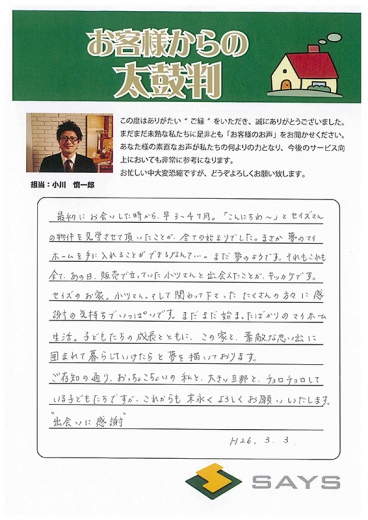 お客様からの
太鼓判
この度はありがたい“ご縁”をいただき、誠にありがとうございました。
まだまだ未熟な私たちに是非とも「お客様のお声」をお聞かせください。
あなた様の素直なお声が私たちの何よりの力となり、今後のサービス向
上においても非常に参考になります。
お忙しい中大変恐縮ですが、どうぞよろしくお願い致します。
担当：小川 慎一郎
最初にお会いした時から、早3〜4ヶ月。「こんにちわ〜」とセイズさん
の物件を見学させて頂いたことが、全ての始まりでした。まさか夢のマイ
ホームを手に入れることができるなんて…。まだ夢のようです。それもこれも
全て、あの日、販売で立っていた小川さんと出会えたことが、キッカケです。
セイズのお家。小川さん。そして関わって下さったたくさんの方々に感
謝の気持ちでいっぱいです。まだまだ始まったばかりのマイホーム
生活。子どもたちの成長とともに、この家と、素敵な思い出に
囲まれて暮らしていけたらと夢を描いております。
ご存知の通り、おっちょこちょいの私と、大きい旦那と、チョロチョロして
いる子どもたちですが、これからも末永くよろしくお願いいたします。
“出会いに感謝”
H26. 3. 3.
SAYS